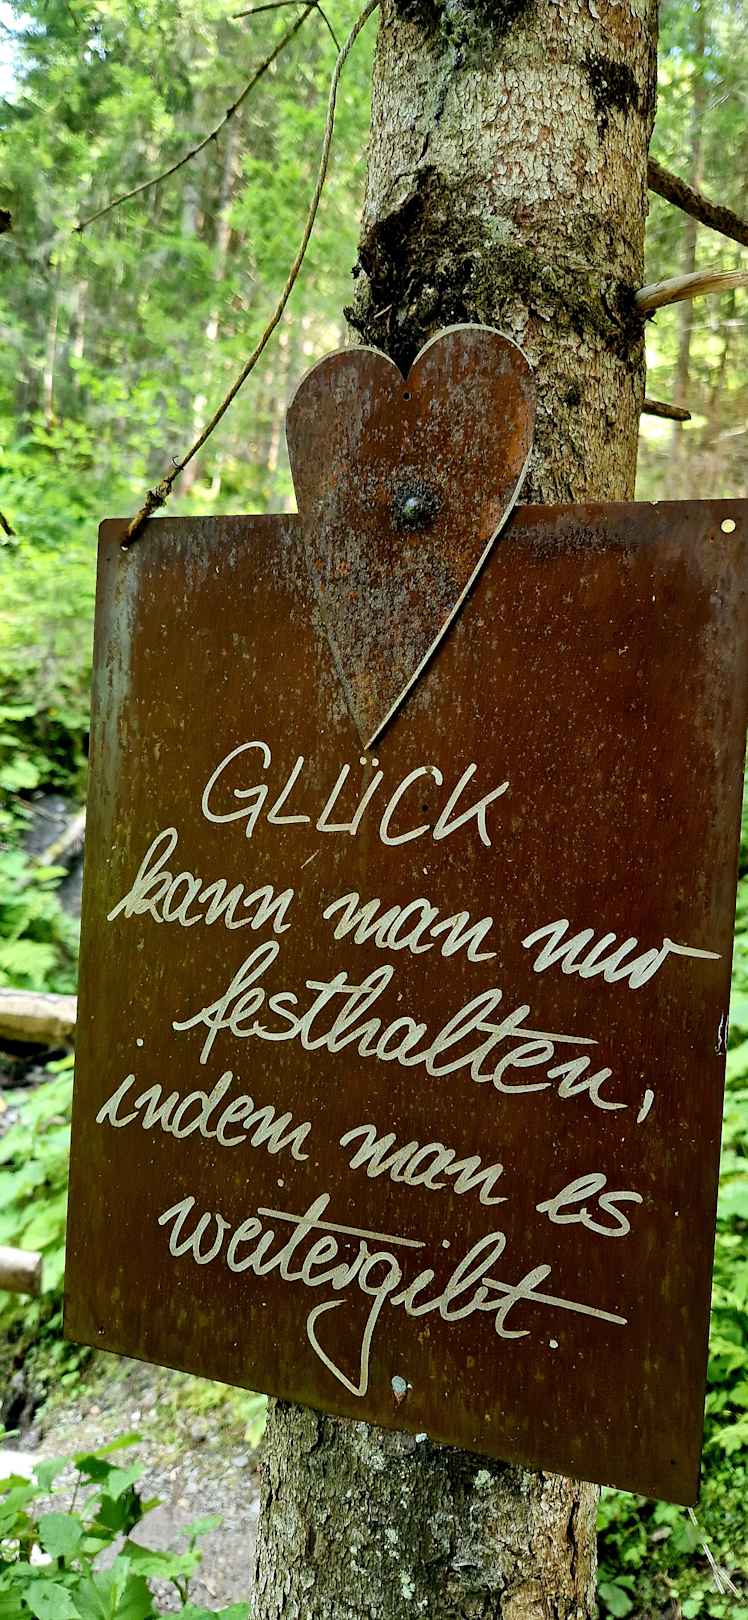 GLÜCK
kann man nur
festhalten,
indem man es
weitergibt.